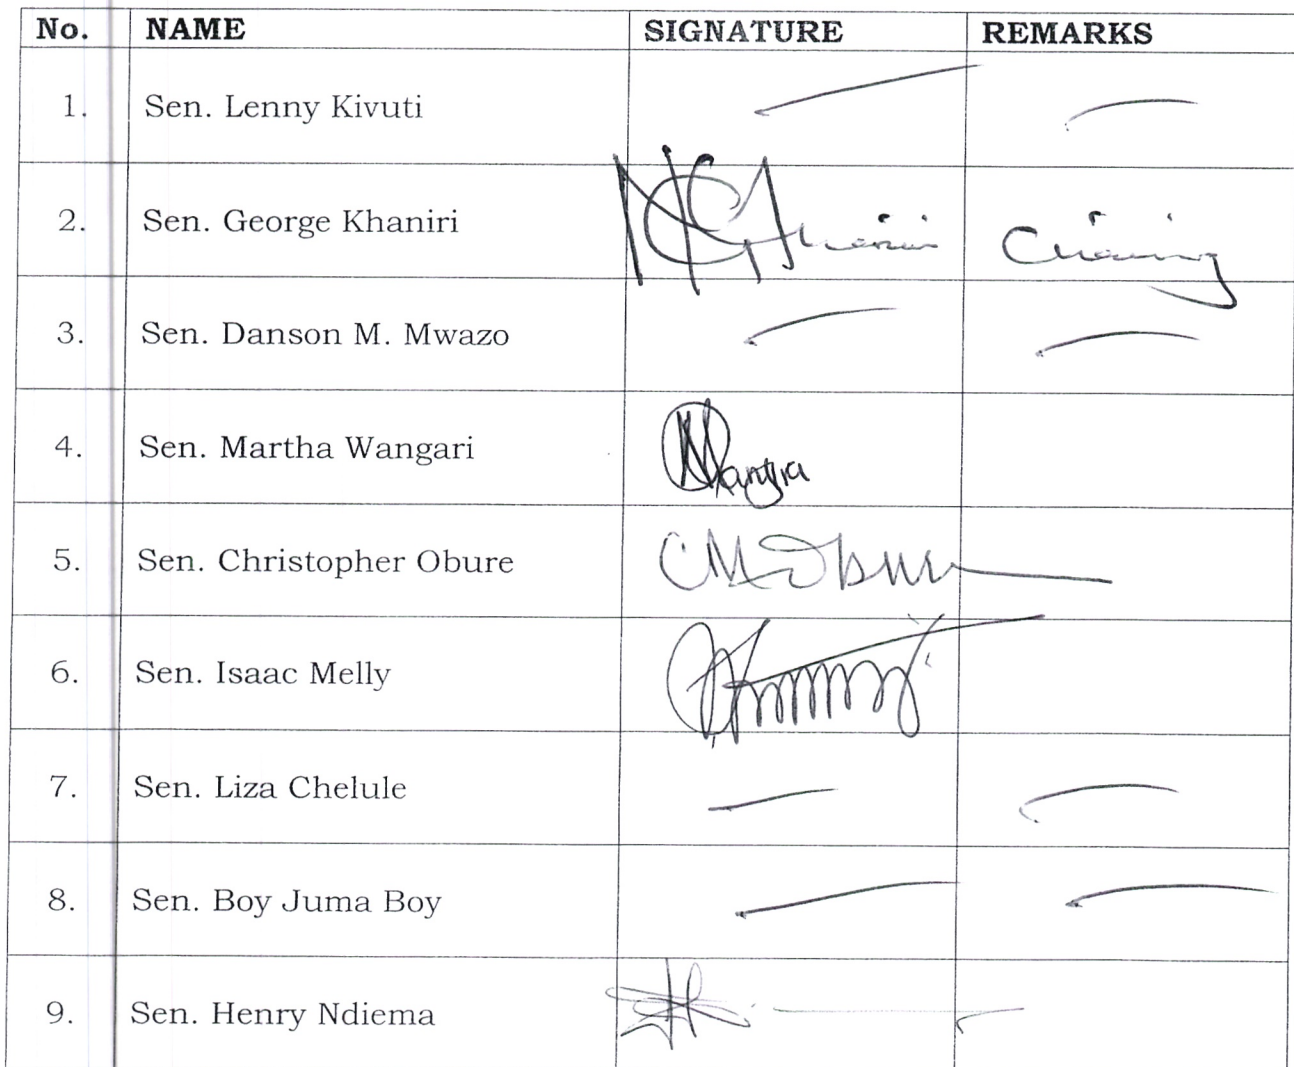 No. NAME SIGNATURE REMARKS
1. Sen. Lenny Kivuti
2. Sen. George Khaniri
3. Sen. Danson M. Mwazo
4. Sen. Martha Wangari
5. Sen. Christopher Obure
6. Sen. Isaac Melly
7. Sen. Liza Chelule
8. Sen. Boy Juma Boy
9. Sen. Henry Ndiema